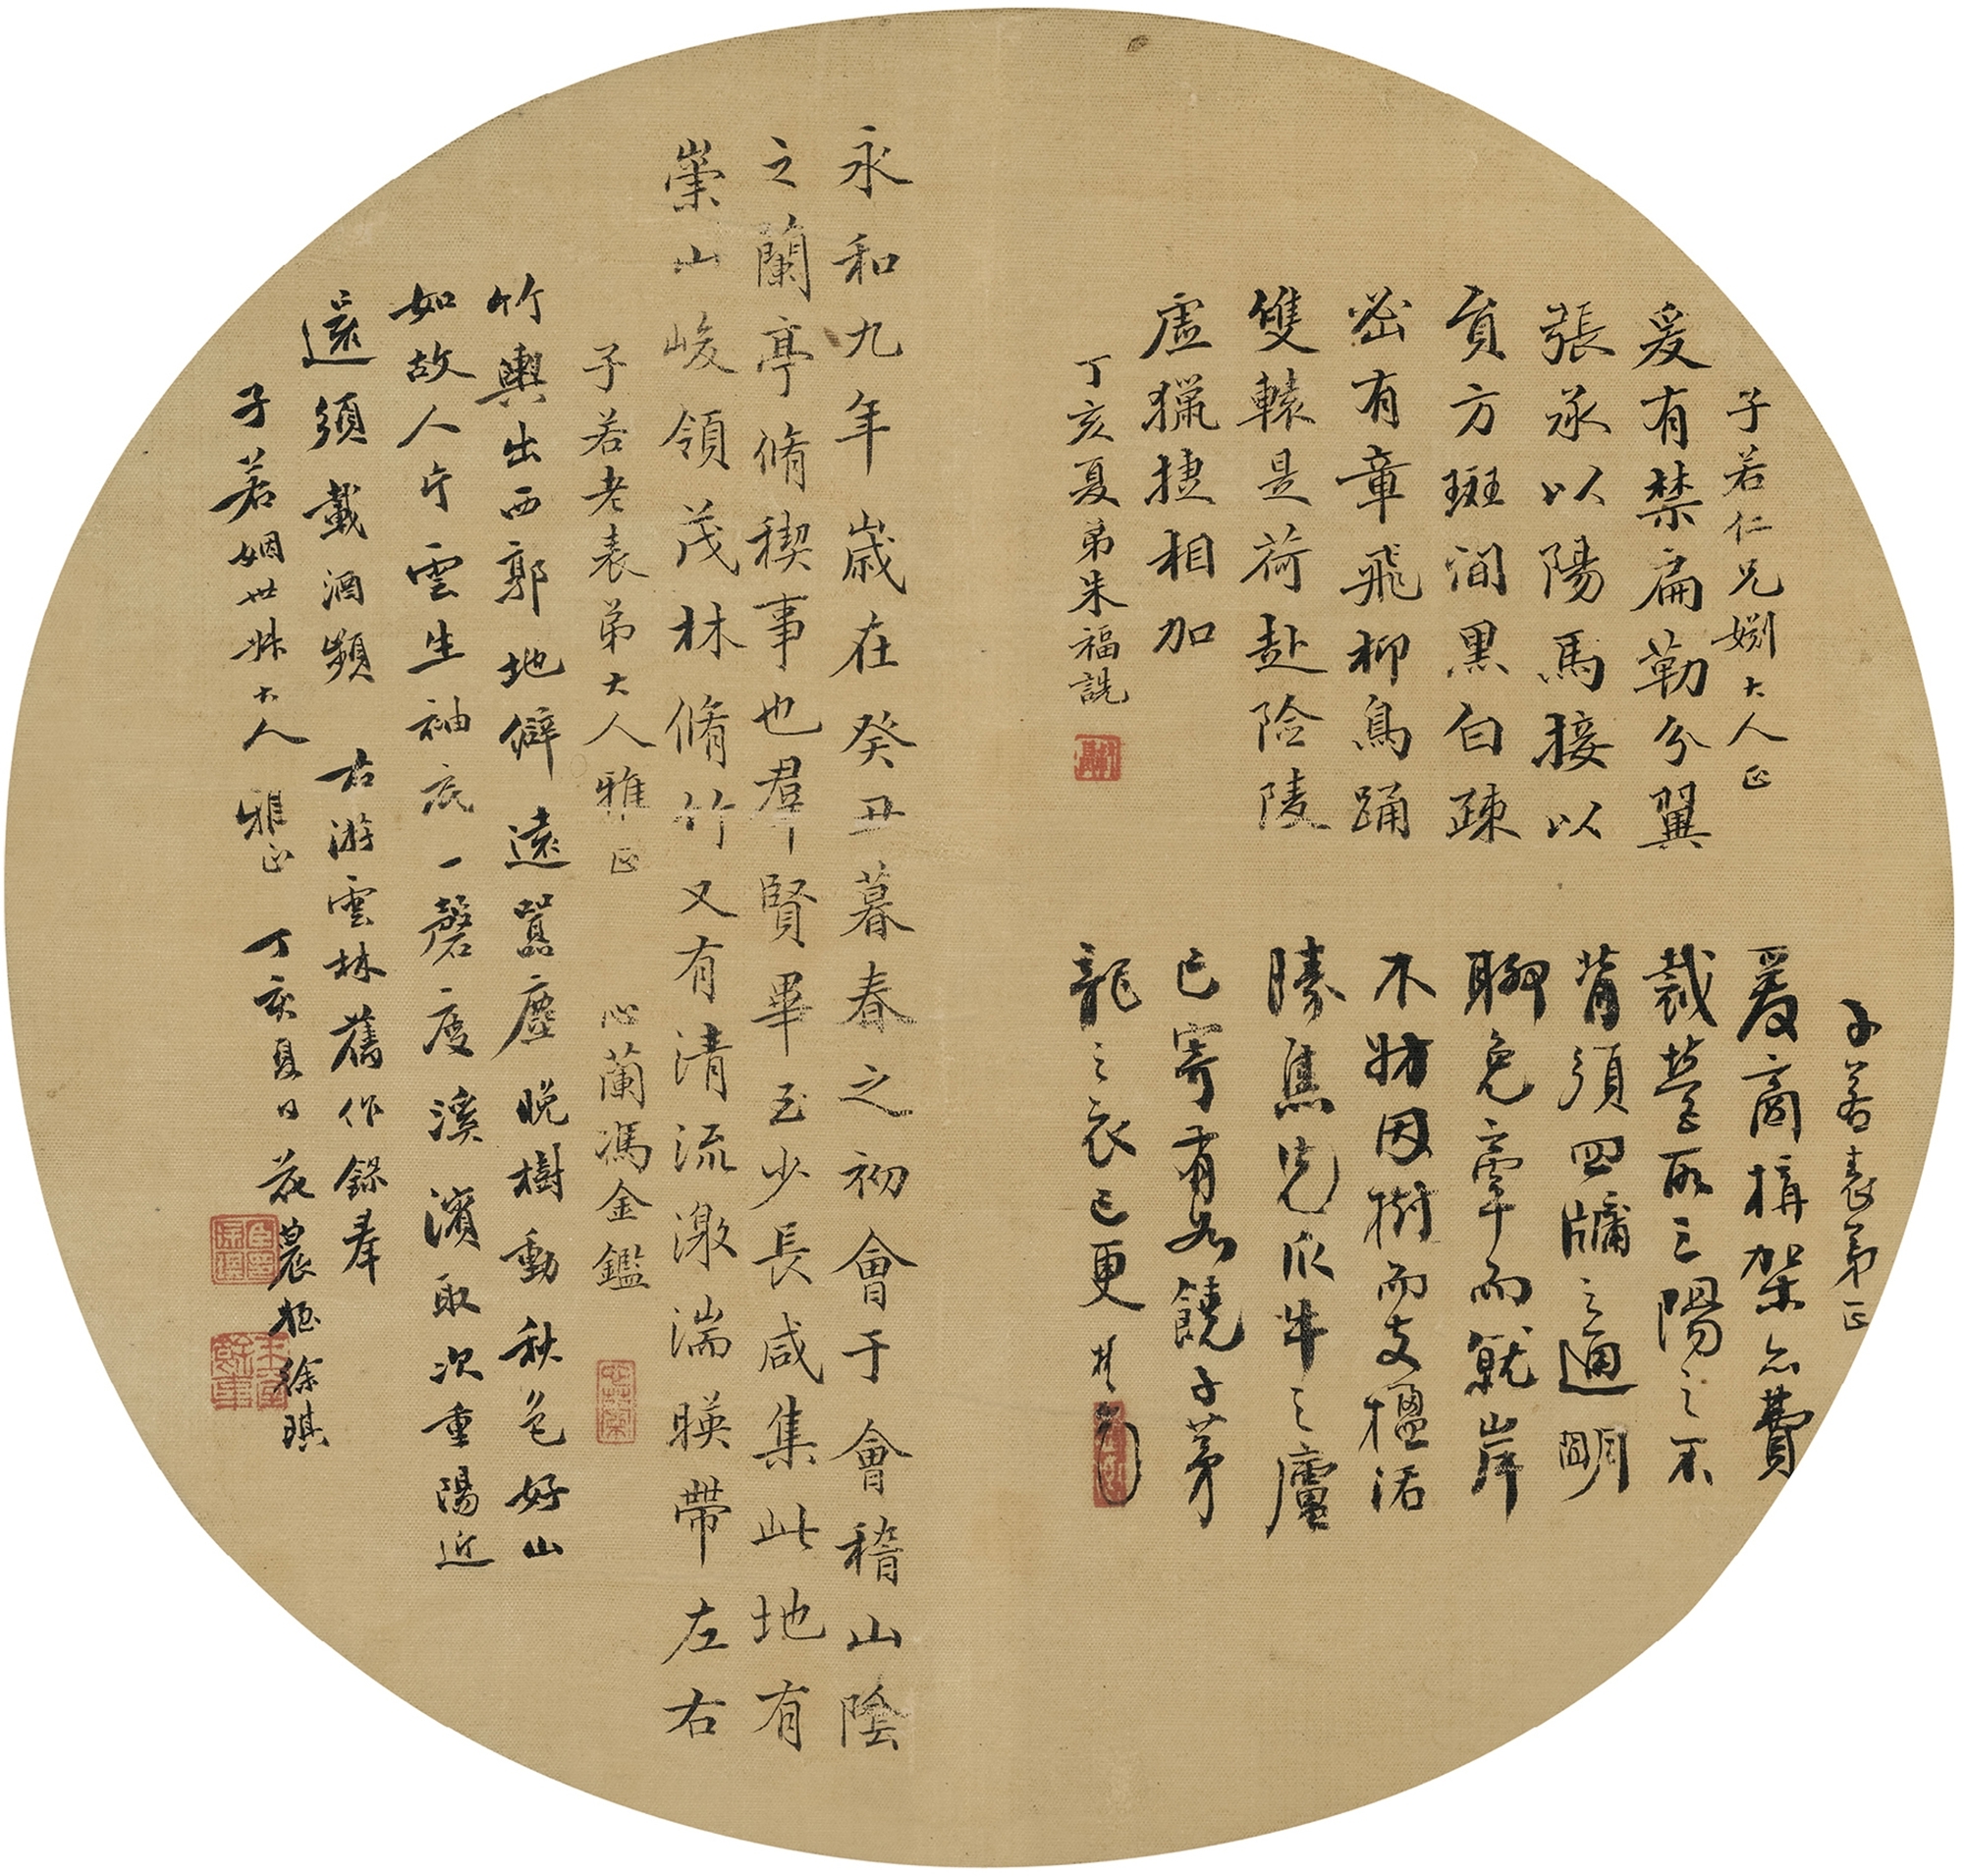 子若仁兄姻大人正
爰有禁扁勒分翼
張承以陽馬接以
員方斑間黑白疎
密有章飛柳鳥踊
雙轅是荷赴險陵
虛獵捷相加
丁亥夏弟朱福詵
子若表弟正
爰商構架亦費
裁營取三陽之不
背須四牖之通明
聊免牽而就岸
不妨因樹而支楹活
勝焦先瓜牛之廬
已寄有如饒子茅
龍之衣已更
永和九年歲在癸丑暮春之初會于會稽山陰
之蘭亭脩稧事也羣賢畢至少長咸集此地有
崇山峻領茂林脩竹又有清流激湍暎帶左右
子若老表弟大人雅正 心蘭馮金鑑
竹輿出西郭地僻遠囂塵晚樹動秋色好山
如故人片雲生袖底一磬度溪濱取次重陽近
還須載酒頻 右游雲林舊作錄奉
子若姻世妹大人雅正 丁亥夏日花農姪徐琪